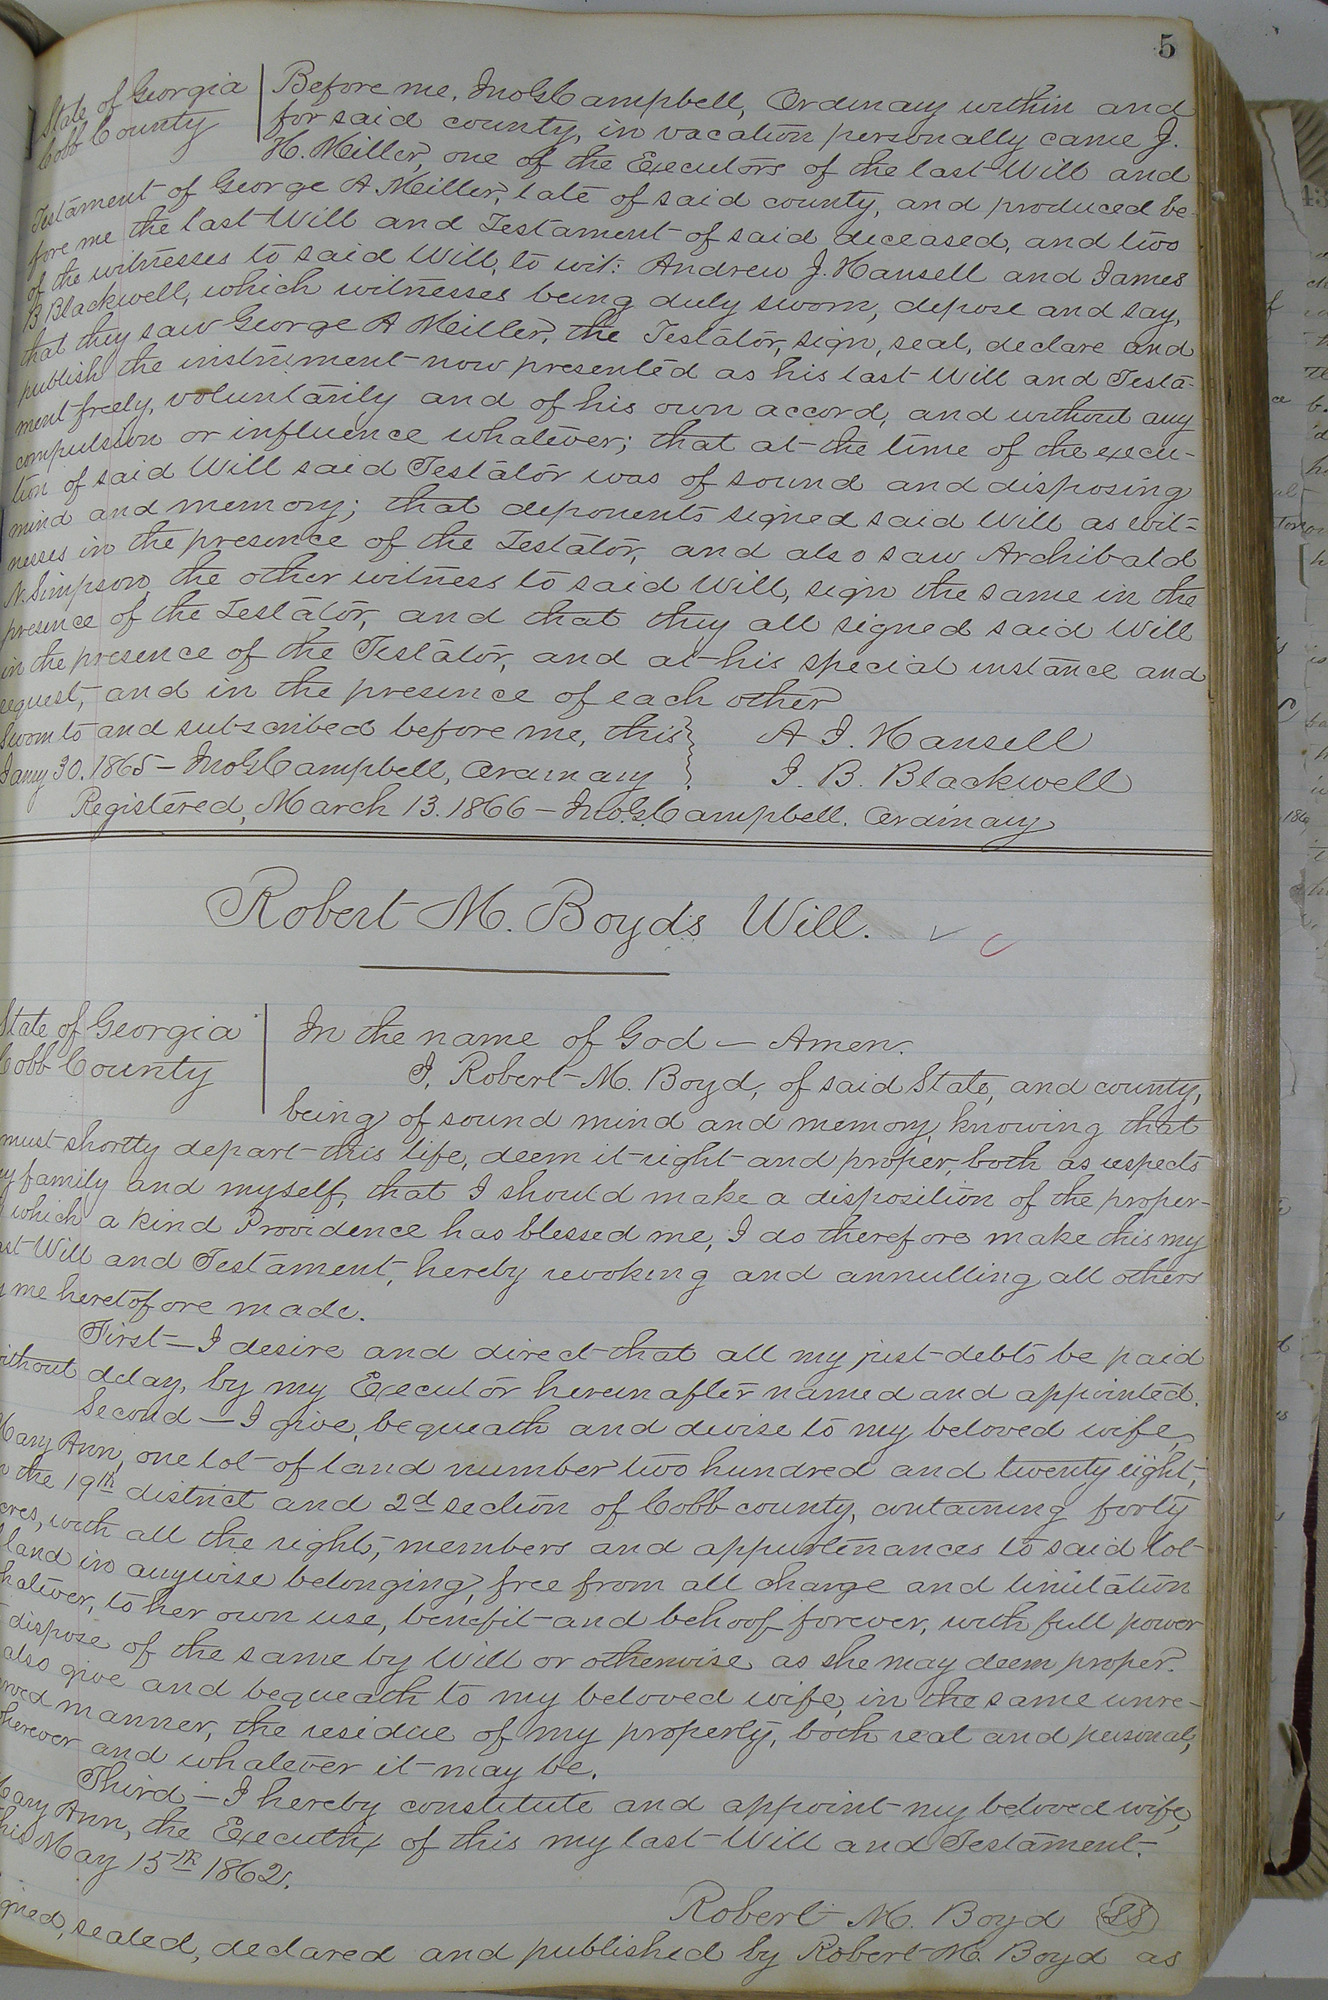 5
State of Georgia
Cobb County
Before me, Jno G Campbell, Ordinary within and
for said county, in vacation personally came J.
H. Miller, one of the Executors of the last Will and
Testament of George A Miller, late of said county, and produced be-
fore me the last Will and Testament of said deceased, and two
of the witnesses to said Will, to wit: Andrew J. Hansell and James
B Blackwell, which witnesses being duly sworn, depose and say,
that they saw George A Miller, the Testator, sign, seal, declare and
publish the instrument now presented as his last Will and Testa-
ment freely, voluntarily and of his own accord, and without any
compulsion or influence whatever; that at the time of the execu-
tion of said Will said Testator was of sound and disposing
mind and memory; that deponents signed said Will as wit-
nesses in the presence of the Testator, and also saw Archibald
N. Simpson, the other witness to said Will, sign the same in the
presence of the Testator, and that they all signed said Will
in the presence of the Testator, and at his special instance and
request, and in the presence of each other
Sworn to and subscribed before me, this
A J. Hansell
Jany 30. 1865 - Jno G Campbell, Ordinary
J. B. Blackwell
Registered, March 13. 1866 - Jno. G. Campbell. Ordinary
Robert M. Boyd's Will.
State of Georgia
Cobb County
In the name of God - Amen.
I, Robert M. Boyd, of said State, and county,
being of sound mind and memory, knowing that
must shortly depart this life, deem it right and proper, both as respects
my family and myself, that I should make a disposition of the proper-
which a kind Providence has blessed me, I do therefore make this my
last Will and Testament, hereby revoking and annulling all others
by me heretofore made.
First - I desire and direct that all my just debts be paid
without delay, by my Executor hereinafter named and appointed.
Second - I give, bequeath and devise to my beloved wife,
Mary Ann, one lot of land number two hundred and twenty eight,
in the 19th district and 2d section of Cobb county, containing forty
acres, with all the right, members and appurtenances to said lot
land in anywise belonging, free from all charge and limitation
whatever, to her own use, benefit and behoof forever, with full power
dispose of the same by Will or otherwise as she may deem proper.
also give and bequeath to my beloved wife, in the same unre-
served manner, the residue of my property, both real and personal,
wherever and whatever it may be.
Third - I hereby constitute and appoint my beloved wife,
Mary Ann, the Executrix of this my last Will and Testament.
this May 15th 1862.
Robert M. Boyd LS
Signed, sealed, declared and published by Robert M. Boyd as